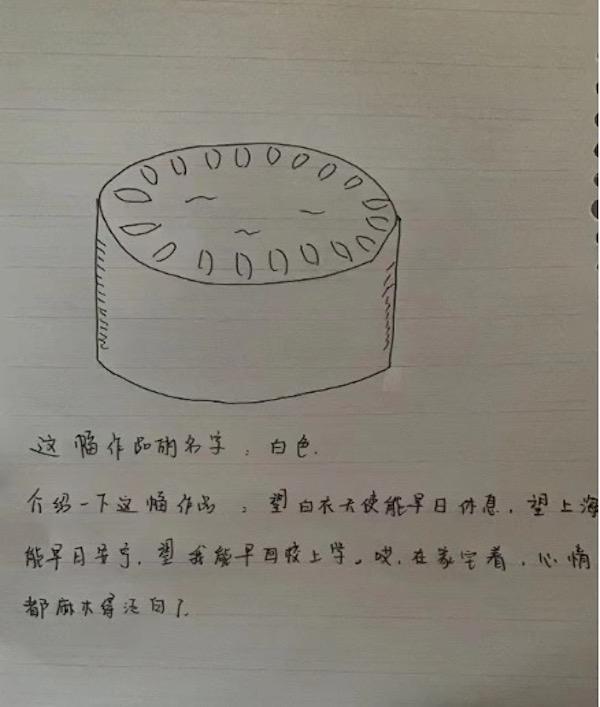 这幅作品的名字：白色.
介绍一下这幅作品：望白衣天使能早日休息，望上海
能早日安宁，望我能早回校上学。哎，在家宅着，心情
都麻木得泛白了.